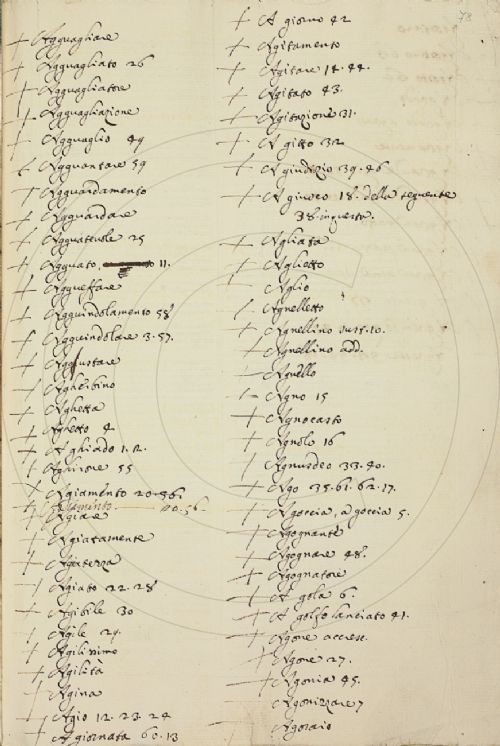 78
+ Agguagliare
+ Agguagliato 26
+ Agguagliatore
+ Agguagliazione
+ Agguaglio 49
+ Agguantare 59
+ Agguardamento
+ Agguardare
+ Agguatevole 25
+ Agguato, 11.
+ Aggueffare
+ Agguindolamento 58
+ Agguindolare 3. 57.
+ Aggustare
+ Agherbino
+ Aghetta
+ Aghetto 4
+ A ghiado 1. 12.
+ Aghirone 55
+ Agiamento 20. 56.
+ Agiare
+ Agiatamente
+ Agiatezza
+ Agiato 22. 28
+ Agibile 30
+ Agile 29.
+ Agilissimo
+ Agilità
+ Agina
+ Agio 12. 23. 24
+ A giornata 60. 13
+ A giorno 42
+ Agitamento
+ Agitare 14. 44.
+ Agitato 43.
+ Agitazione 31.
+ A gitto 32
+ A giudizio 39. 46
+ A giuoco 18. della seguente
38. in questa.
+ Agliata
+ Aglietto
Aglio
Agnelletto
+ Agnellino 10.
+ Agnellino add.
Agnello
Agno 15
+ Agnocasto
+ Agnolo 16
+ Agnusdeo 33. 40.
+ Ago 35. 61. 62. 17.
+ Agoccia, a goccia 5.
+ Agognante
+ Agognare 48.
+ Agognatore
+ A gola 6.
+ A golfo lanciato 41.
+ Agone accresc.
+ Agone 27.
+ Agonia 45.
Agonizzare 7
Agoraio